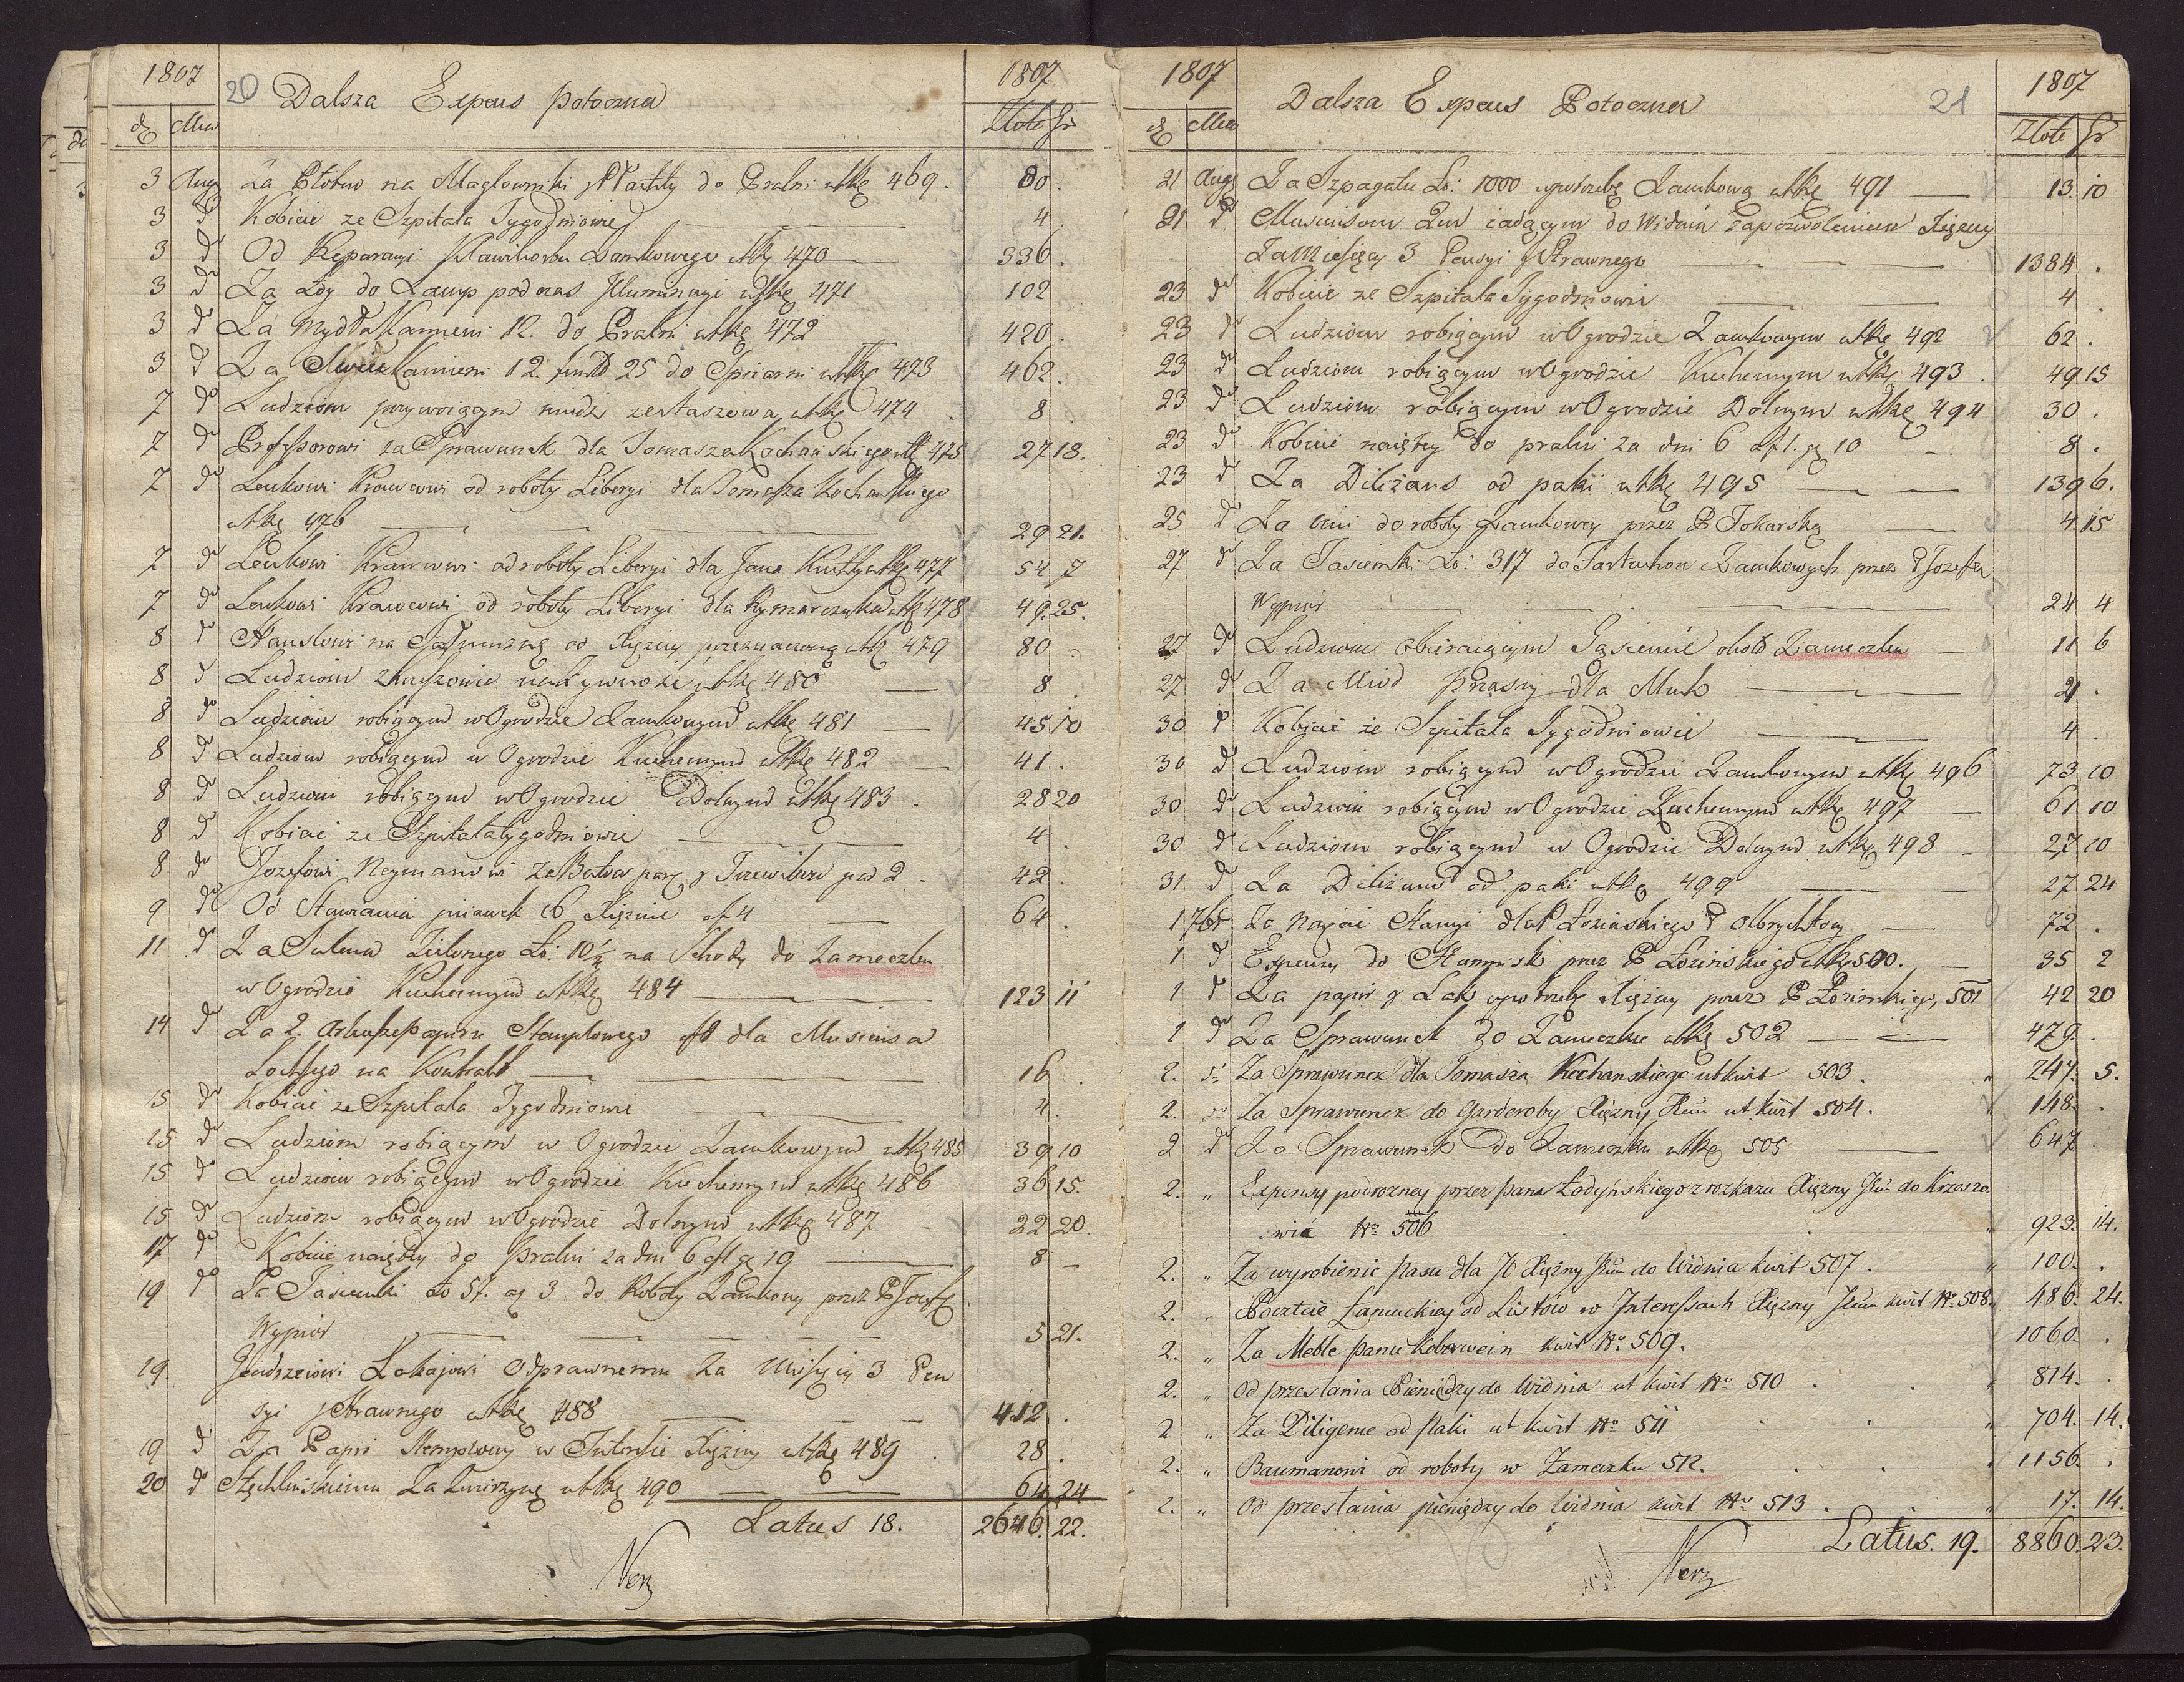 1807
20
Dalsza Expens potoczna
1807
Mca
Złote Gr
3 Aug Za Płótno na Maglowniki do Pralni utkę 469. 80.
3 do Kobicie ze Szpitala Tygodniowie 4.
3 do Od Reparacyi Klawikorbu Zamkowego utkę 470 336.
3 do Za Loy do Lamp podczas Jlluminacyi utkę 471 102
3 do Za Mydła Kamieni 12. do Pralni utkę 472 420.
3 do Za Kamieni 12. funtt 25 do Spiżarni utkę 473 462.
7 do Ludziom utkę 474 8
7 do Professorowi za Sprawunek dla Tomasza Kochańskiego utk 475 27 18.
7 do Lenkowi Krawcowi od roboty Liberyi dla Tomasza Kochańskiego
utkę 476 29 21.
7 do Lenkowi Krawcowi od roboty Liberyi dla Jana utkę 477 54 7
7 do Lenkowi Krawcowi od roboty Liberyi dla Rymarczuka utk 478 49. 25.
8 do na Jałmużnę od Xiężny przeznaczoną utk 479 80
8 do Ludziom utkę 480 8.
8 do Ludziom robiącym w Ogrodzie Zamkowym utkę 481 45 10
8 do Ludziom robiącym w Ogrodzie Kuchennym utkę 482 41.
8 do Ludziom robiącym w Ogrodzie Dolnym utkę 483. 28 20
8 do Kobicie ze Szpitala tygodniowie 4.
8 do Jozefowi Neymanowi za Botow parę y Trzewikow par 2. 42.
9 do Od Stawiania piiawek 16 Xiężnie af 4 64.
11. do Za Sukna Zielonego Ło: 10½ na Schody do Zameczku
w Ogrodzie Kuchennym utkę 484 123 11
14 do Za 2. Arkusze Papieru Stemplowego dla Musicusa
na Kontrakt 16.
15 do Kobicie ze Szpitala Tygodniowie 4.
15 do Ludziom robiącym w Ogrodzie Zamkowym utkę 485 39 10
15 do Ludziom robiącym w Ogrodzie Kuchennym utkę 486 36 15.
15 do Ludziom robiącym w Ogrodzie Dolnym utkę 487 22 20
17 do Kobicie naiętey do Pralni za dni 6 8
19 do Za Tasiemki Ło 57. ag 3 do Roboty Zamkowy przez P Jozef
Wypiór 5 21.
19. Jendrzeiowi Lokajowi Odprawnemu za Miesięcy 3 Pen
syi y Strawnego utkę 488 412.
19 do Za Papier Stemplowy w Xiężny utkę 489. 28.
20 do Stęchlińskiemu Za Zwierzynę utkę 490 64 24
Latus 18. 2646. 22.
Nerz
1807
Dalsza Expens Potoczna
21
1807
Mca
Złote Gr
21 Aug Za Szpagatu Ło: 1000 Zamkową utkę 491 13. 10
21 do Musicusom Dwu iadącym do Widnia za pozwoleniem Xiężny
Za Miesięcy 3 Pensyi y Strawnego 1384.
23 do Kobicie ze Szpitala Tygodniowie 4
23 do Ludziom robiącym w Ogrodzie Zamkowym utkę 492 62.
23 do Ludziom robiącym w Ogrodzie Kuchennym utkę 493. 49 15
23 do Ludziom robiącym w Ogrodzie Dolnym utkę 494 30.
23 do Kobicie naiętey do pralni za dni 6 af 1. g 10 8.
23 do Za Diliżans od paki utkę 495 139 6.
25 do Za do roboty Zamkowey przez P Tokarską 4 15
27 do Za Tasiemki Ło: 317 do Fartuchow Zamkowych przez P Jozefa
Wypiór 24 4
27 do Ludziom obieraiącym Gąsienie około Zameczku 11 6
27 do Za Miod Przasny dla Much 21.
30 do Kobicie ze Szpitala Tygodniowie 4.
30 do Ludziom robiącym w Ogrodzie Zamkowym utkę 496 73 10
30 do Ludziom robiącym w Ogrodzie Kuchennym utkę 497 61 10
30 do Ludziom robiącym w Ogrodzie Dolnym utkę 498 27 10
31 do Za Diliżans od paki utkę 499 27 24
1 7br Za Najęcie Stancyi dla P Łozinskiego P Olbrychtowy 72.
1 do Expensy do przez P Łozińskiego utkę 500. 35 2
1 do Za papier y Lak Xiężny przez P Łozinskiego, 501 42 20
1 do Za Sprawunek do Zameczku utkę 502 479.
2. do Za Sprawunek dla Tomasza Kochanskiego ut kwit 503. 247. 5.
2. do Za Sprawunek do Garderoby Xiężny ut kwit 504. 148.
2 do Za Sprawunek do Zameczku utkę 505 647.
2. " Expensy podrozney przez Pana Łodyńskiego z rozkazu Xiężny do Krzeszo
wic No 506 923. 14.
2. " Za wyrobienie Pasu dla JO Xiężny do Widnia kwit 507. 100.
2. " Poczcie Łancuckiey od Listów w Interessach Xiężny kwit No 508. 486. 24.
2. " Za Meble panu Koberwein kwit No 509. 1060.
2. " Od przesłania Pieniędzy do Widnia ut kwit No 510 814.
2 " Za Diligence od Paki ut kwit No 511 704. 14.
2. " Baumanowi od roboty w Zameczku 512. 1156.
2. " Od przesłania pieniędzy do Widnia kwit No 513. 17. 14.
Latus. 19. 8860. 23.
Nerz